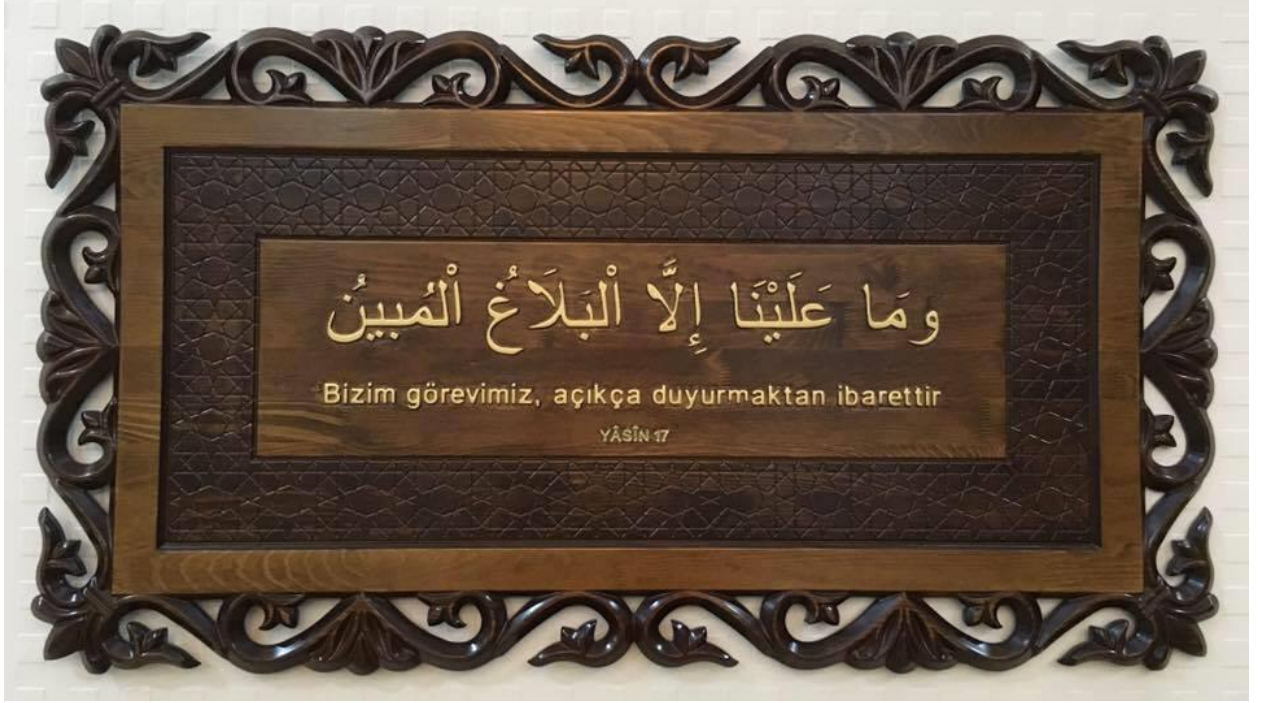 وَمَا عَلَيْنَا إِلَّا الْبَلَاغُ الْمُبِينُ
Bizim görevimiz, açıkça duyurmaktan ibarettir
YÂSÎN 17